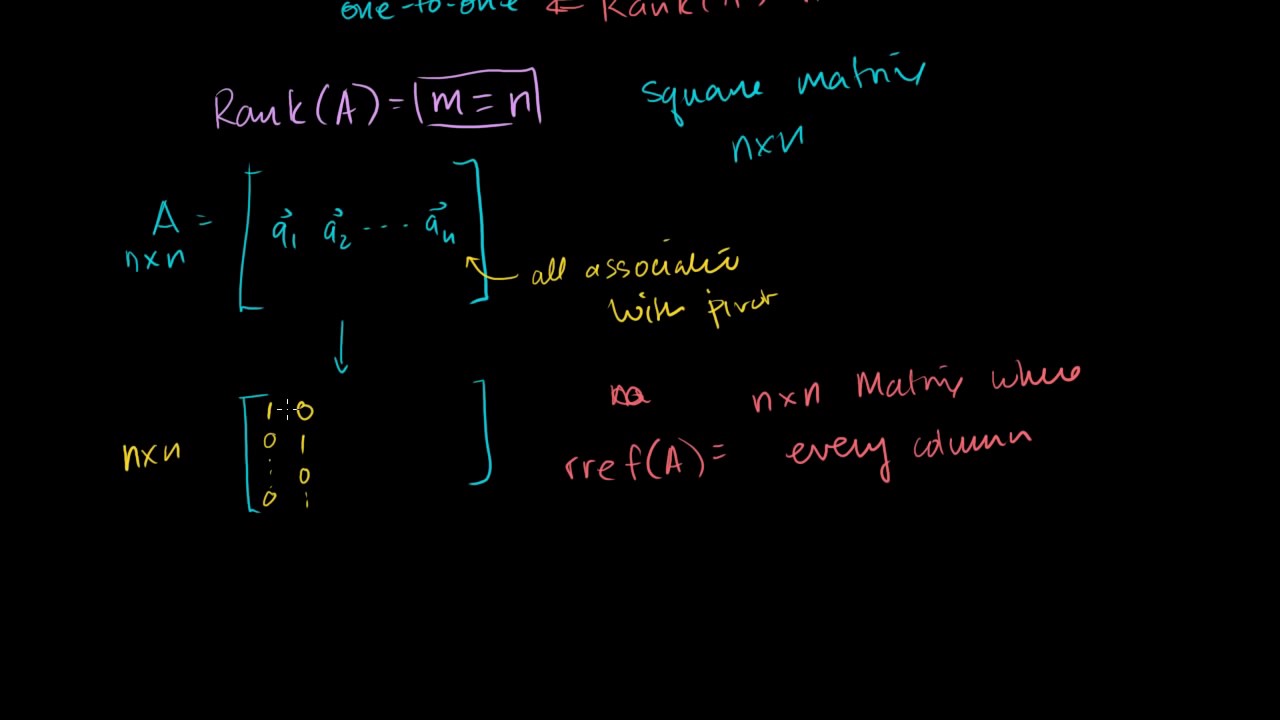 one-to-one ⇐ Rank(A)
Rank(A) = m = n
square matrix
n×n
A = [ a⃗₁ a⃗₂ ⋯ a⃗ₙ ]
n×n
all associate
with pivot
n×n
1 0
0 1
⋮ 0
0 ⋮
n×n Matrix where
rref(A) = every column